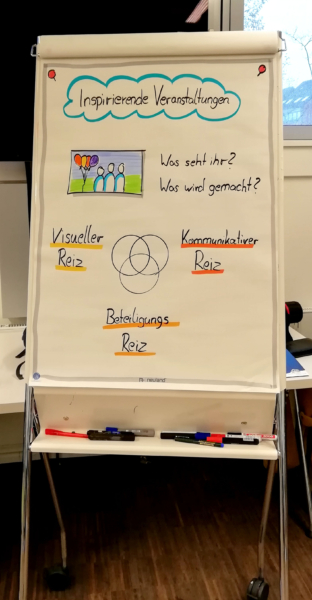 Inspirierende Veranstaltungen
Was seht ihr?
Was wird gemacht?
Visueller
Reiz
Kommunikativer
Reiz
Beteiligungs
Reiz